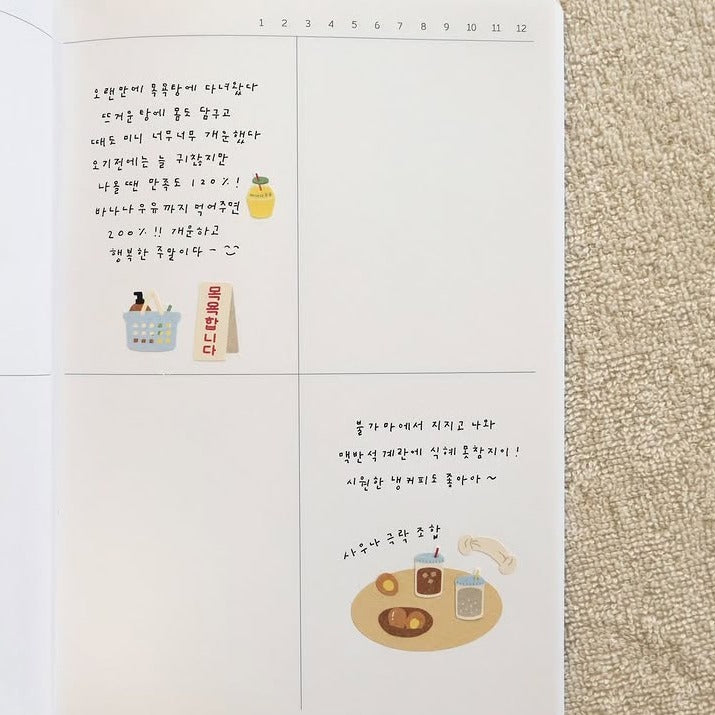 1 2 3 4 5 6 7 8 9 10 11 12
오랜만에 목욕탕에 다녀왔다
뜨거운 탕에 몸도 담구고
때도 미니 너무너무 개운했다
오기전에는 늘 귀찮지만
나올땐 만족도 120%!
바나나우유까지 먹어주면
200%!! 개운하고
행복한 주말이다-
목욕합니다
불가마에서 지지고 나와
맥반석계란에 식혜 못참지이!
시원한 냉커피도 좋아아~
사우나 극락 조합